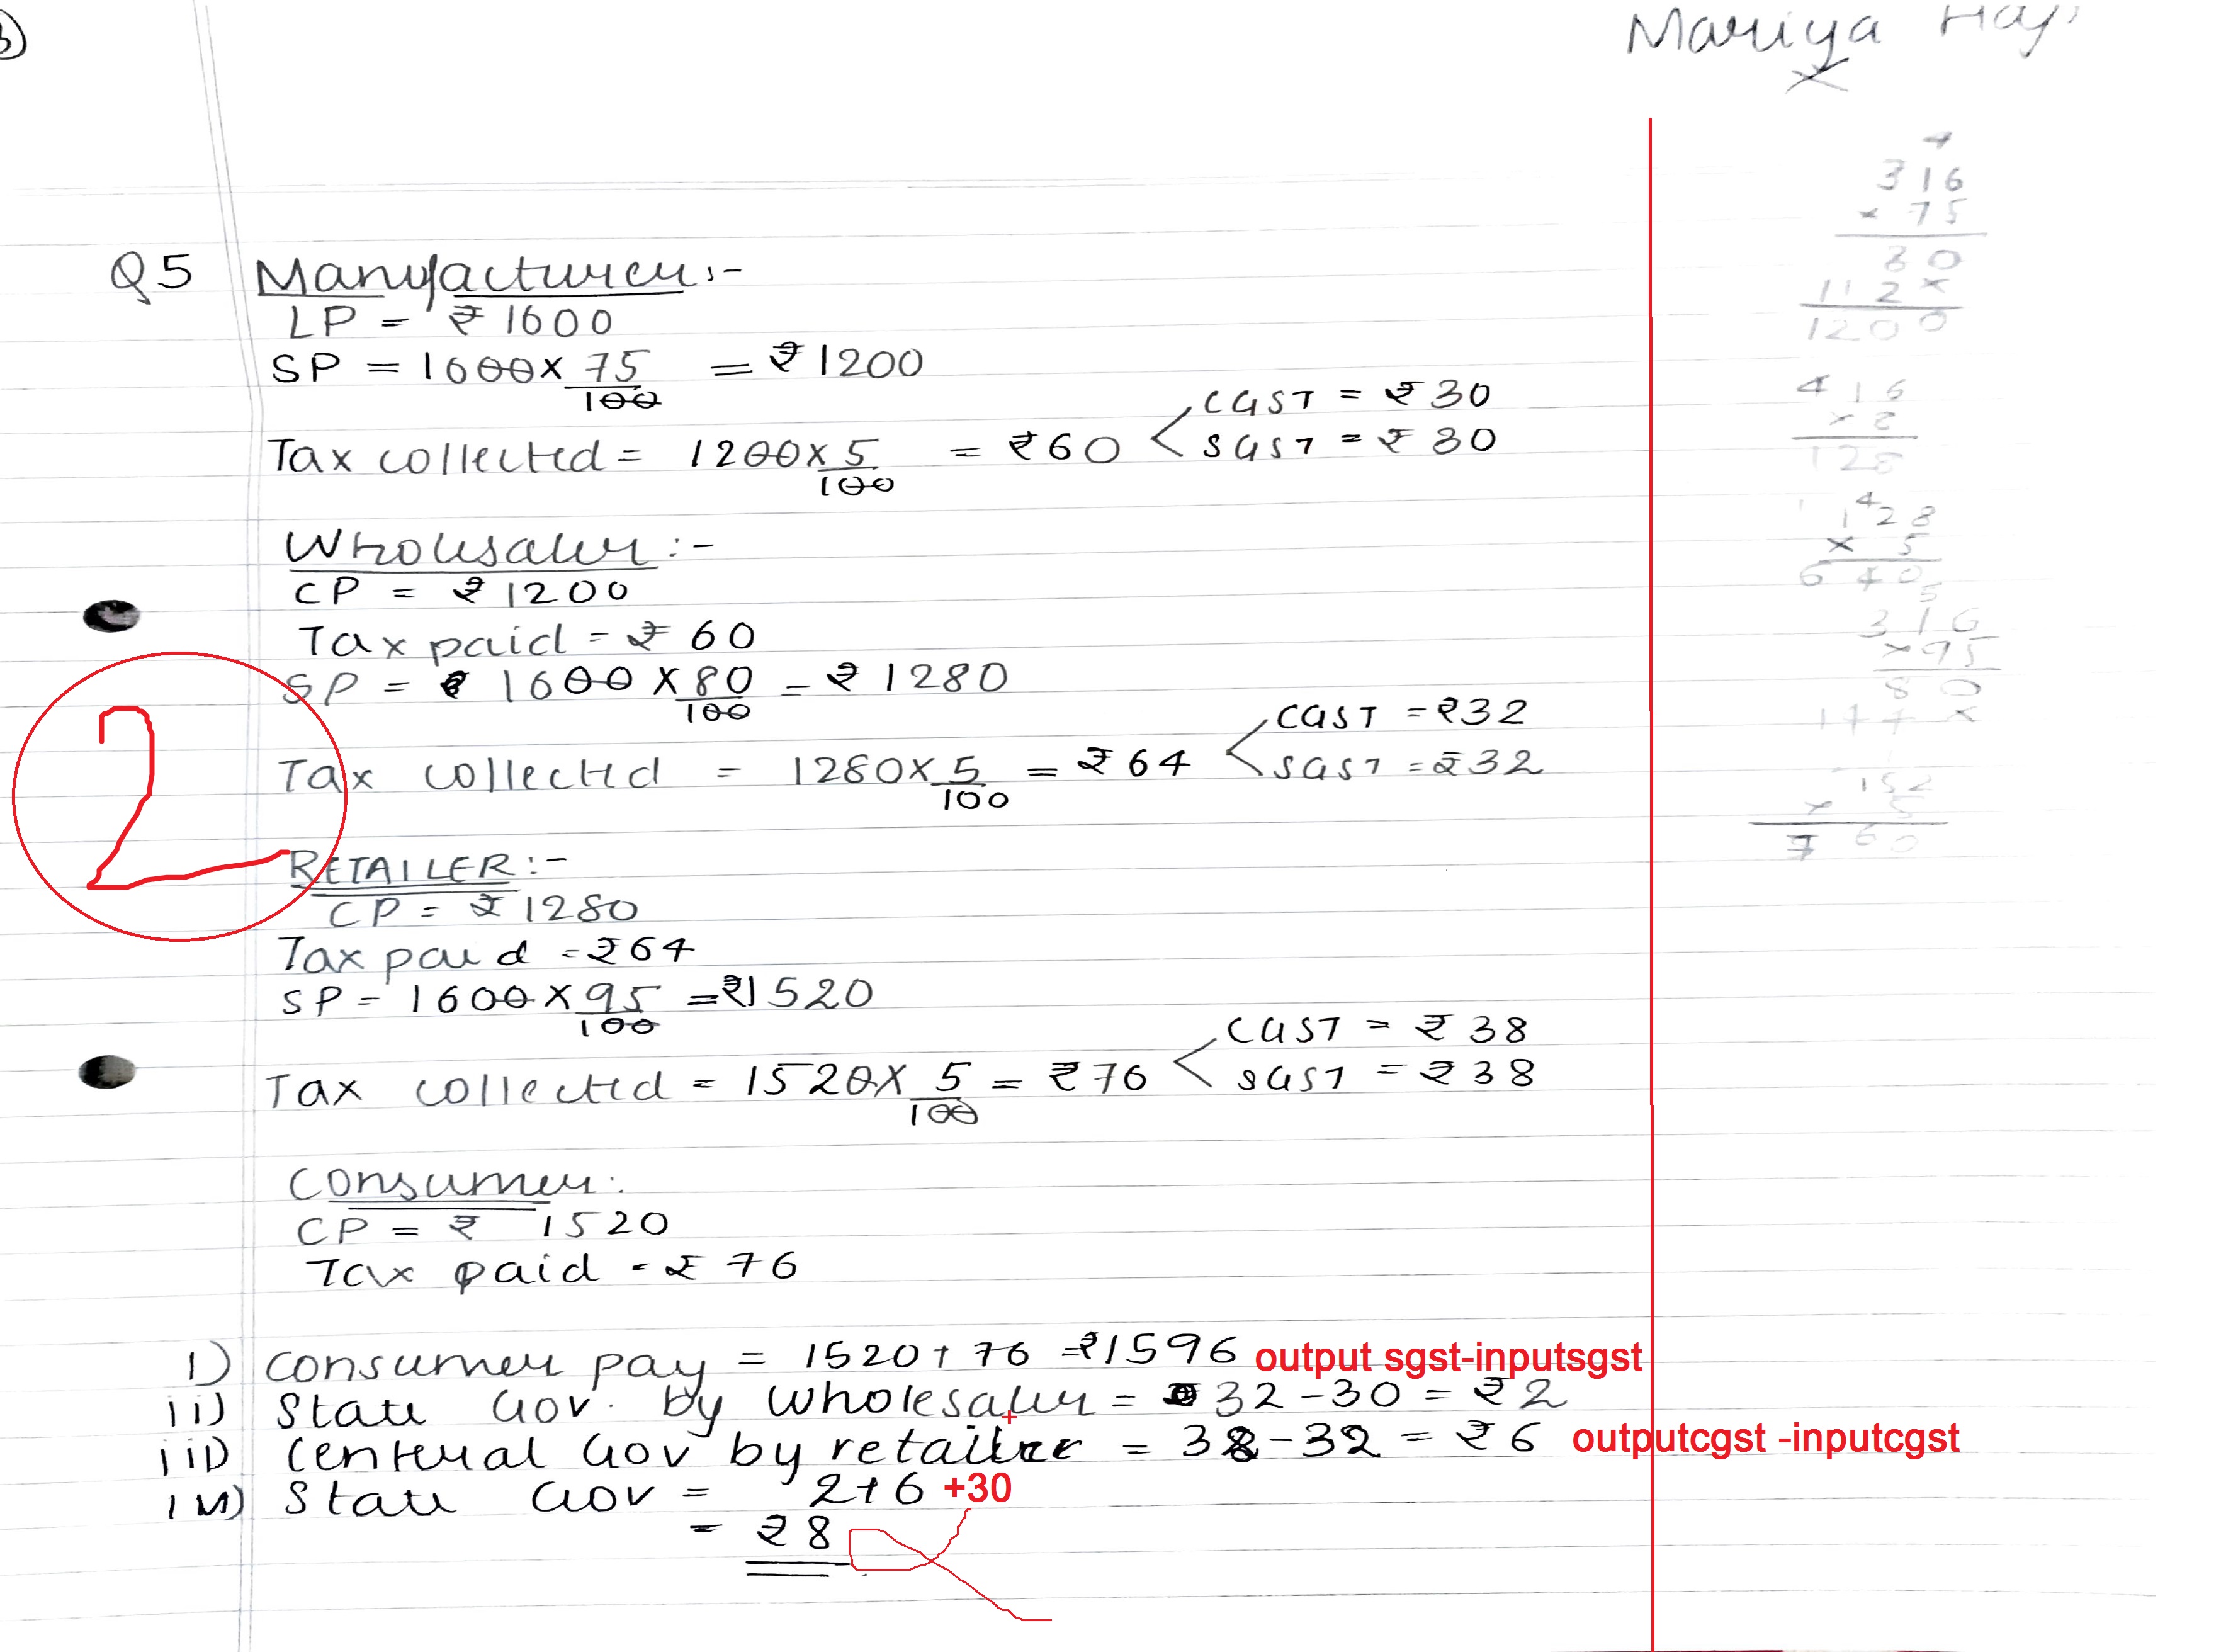 Mariya
X
Q5 Manufacturer:-
LP = ₹1600
SP = 1600 × 75/100 = ₹1200
CGST = ₹30
Tax collected = 1200 × 5/100 = ₹60
SGST = ₹30
Wholesaler:-
CP = ₹1200
Tax paid = ₹60
SP = 1600 × 80/100 = ₹1280
CGST = ₹32
Tax collected = 1280 × 5/100 = ₹64
SGST = ₹32
2
RETAILER:-
CP = ₹1280
Tax paid = ₹64
SP = 1600 × 95/100 = ₹1520
CGST = ₹38
Tax collected = 1520 × 5/100 = ₹76
SGST = ₹38
Consumer:
CP = ₹ 1520
Tax paid = ₹76
i) Consumer pay = 1520 + 76 = ₹1596 output sgst-inputsgst
ii) State Gov. by wholesaler = 32 - 30 = ₹2
iii) Centeral Gov by retailer = 38 - 32 = ₹6 outputcgst -inputcgst
iv) State Gov = 2+6 +30
= ₹8
4
316
× 75
80
112×
1200
416
× 8
128
4
128
× 5
640
5
316
×95
80
×
152
× 5
760